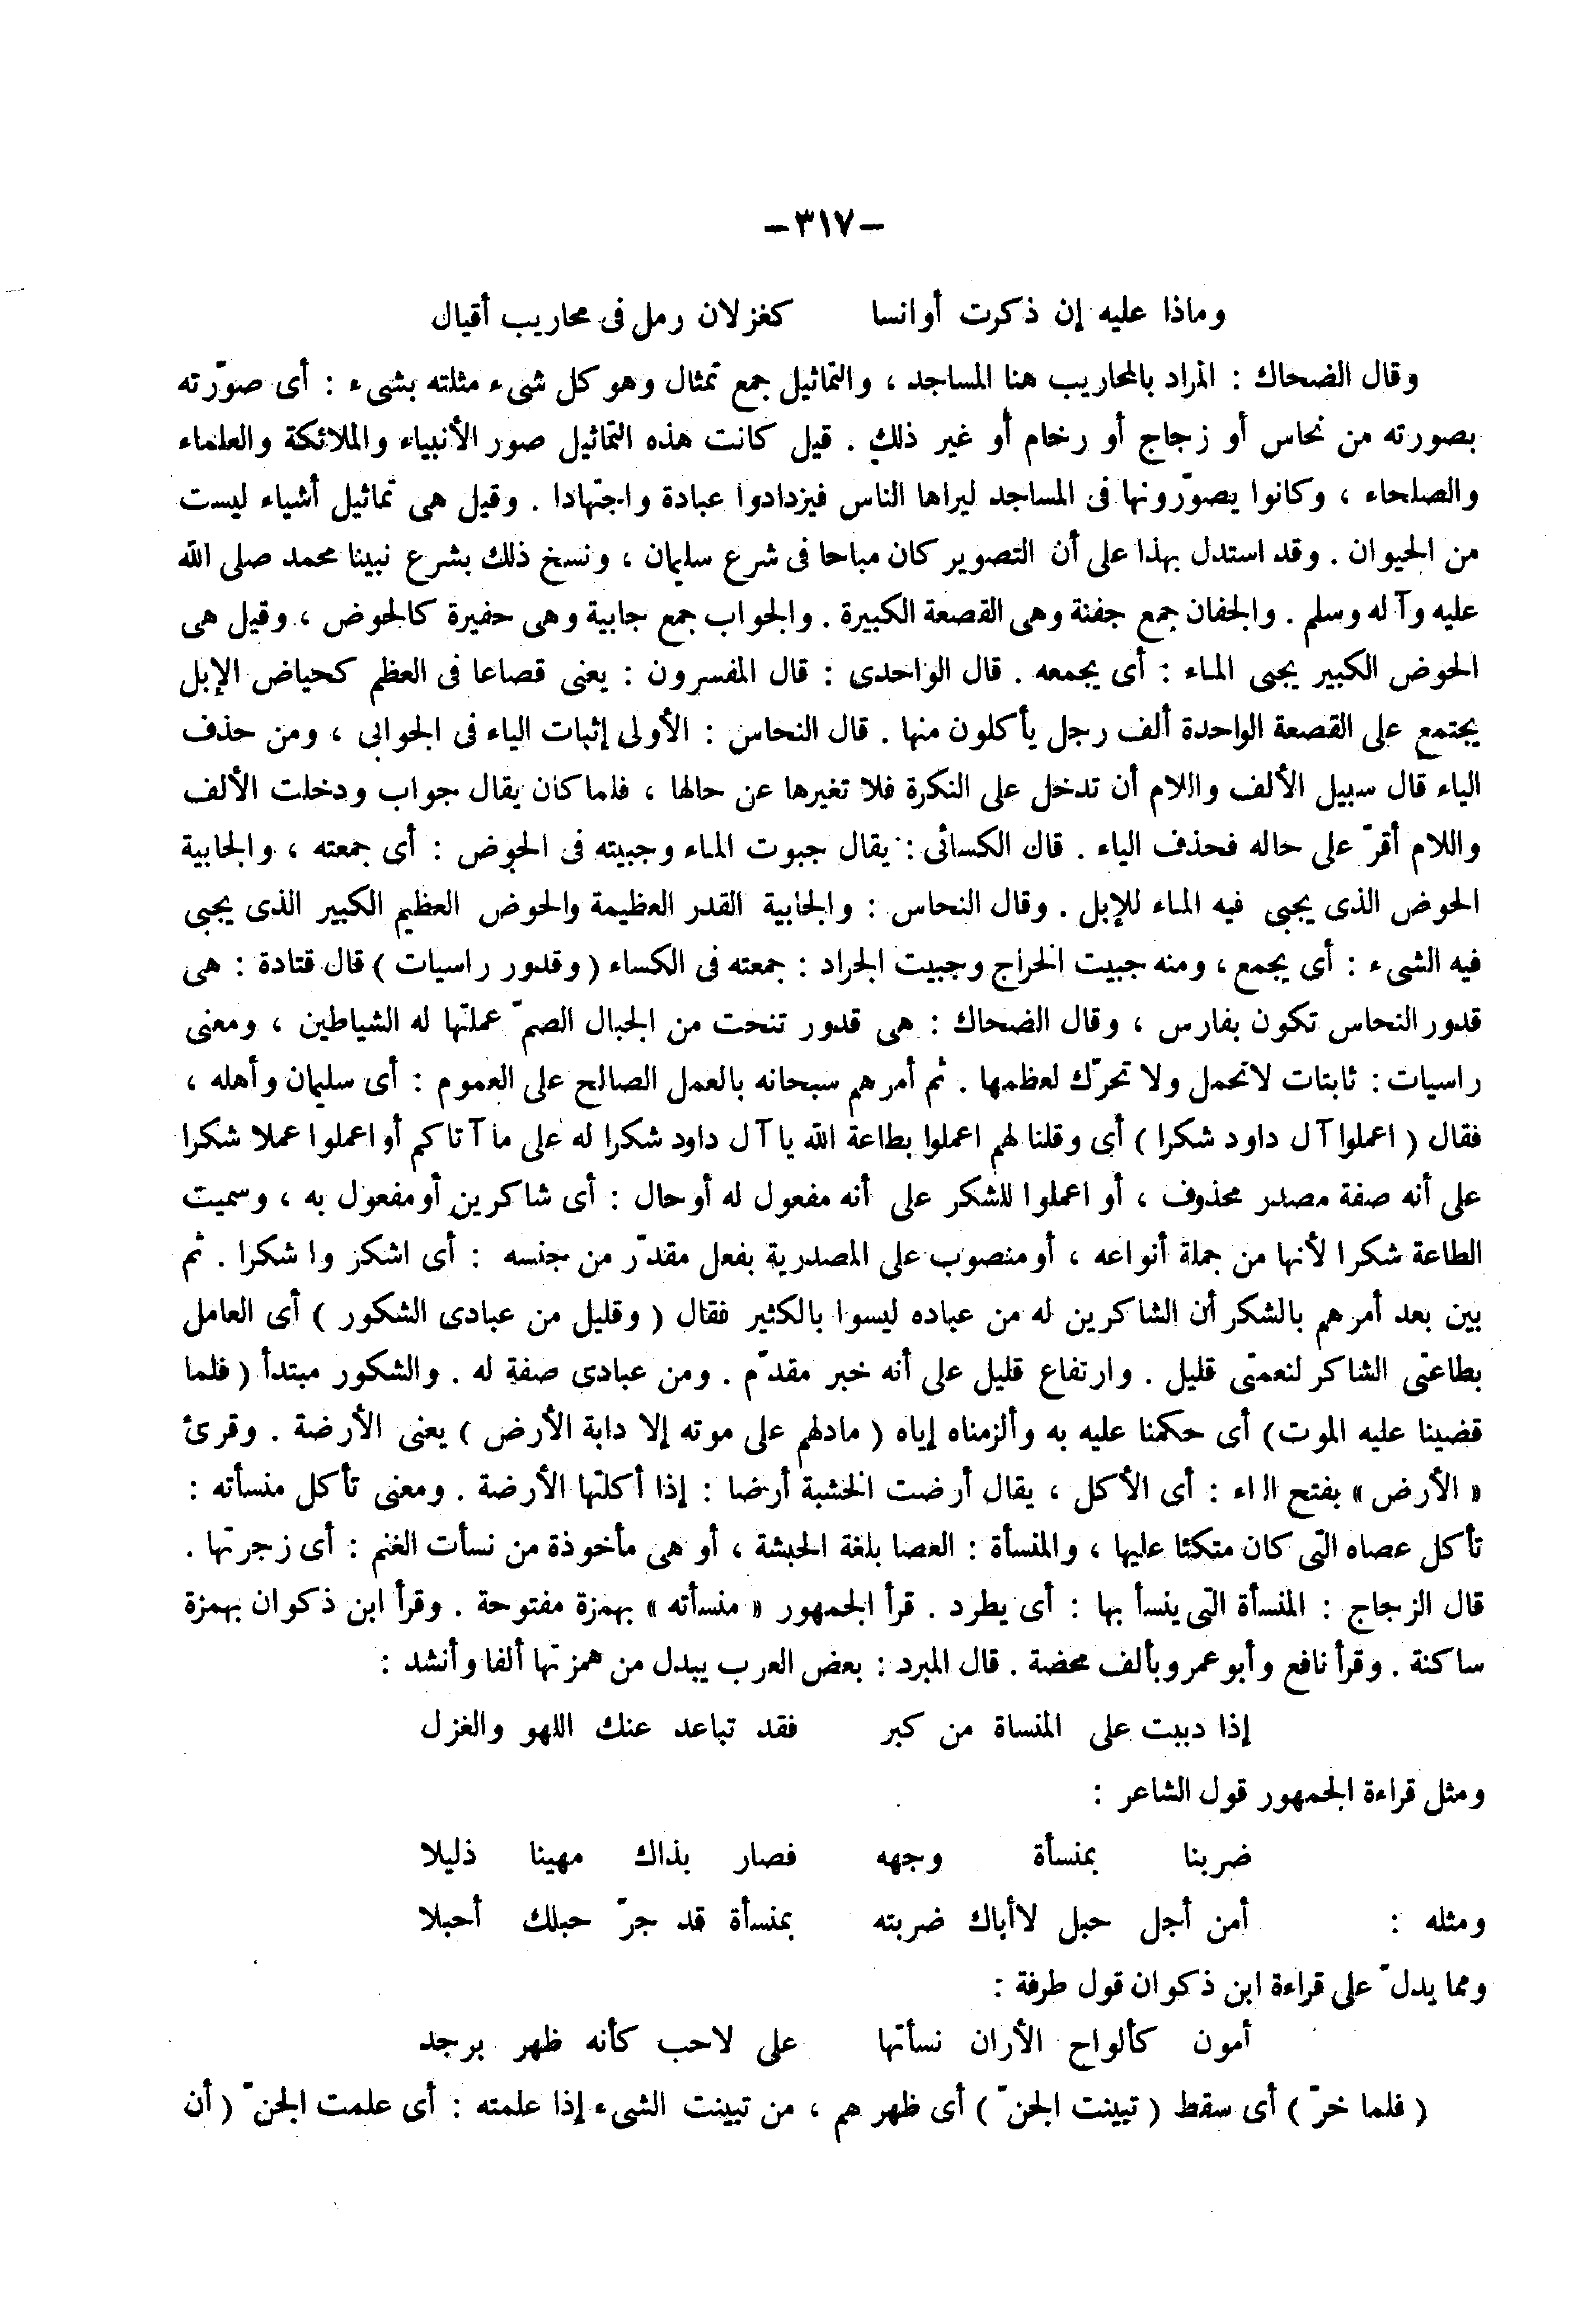 -٣١٧-
وماذا عليه إن ذكرت أوانسا كغزلان رمل فى محاريب أقيال
وقال الضحاك : المراد بالمحاريب هنا المساجد ، والتماثيل جمع تمثال وهو كل شىء مثلته بشىء : أى صوّرته
بصورته من نحاس أو زجاج أو رخام أو غير ذلك . قيل كانت هذه التماثيل صور الأنبياء والملائكة والعلماء
والصلحاء ، وكانوا يصوّرونها فى المساجد ليراها الناس فيزدادوا عبادة واجتهادا . وقيل هى تماثيل أشياء ليست
من الحيوان . وقد استدل بهذا على أن التصوير كان مباحا فى شرع سليمان ، ونسخ ذلك بشرع نبينا محمد صلى الله
عليه وآله وسلم . والجفان جمع جفنة وهى القصعة الكبيرة . والجواب جمع جابية وهى حفيرة كالحوض ، وقيل هى
الحوض الكبير يجبى الماء : أى يجمعه . قال الواحدى : قال المفسرون : يعنى قصاعا فى العظم كحياض الإبل
يجتمع على القصعة الواحدة ألف رجل يأكلون منها . قال النحاس : الأولى إثبات الياء فى الجوابى ، ومن حذف
الياء قال سبيل الألف واللام أن تدخل على النكرة فلا تغيرها عن حالها ، فلما كان يقال جواب ودخلت الألف
واللام أقرّ على حاله فحذف الياء . قال الكسائى : يقال جبوت الماء وجبيته فى الحوض : أى جمعته ، والجابية
الحوض الذى يجبى فيه الماء للإبل . وقال النحاس : والجابية القدر العظيمة والحوض العظيم الكبير الذى يجبى
فيه الشىء : أى يجمع ، ومنه جبيت الخراج وجبيت الجراد : جمعته فى الكساء ( وقدور راسيات ) قال قتادة : هى
قدور النحاس تكون بفارس ، وقال الضحاك : هى قدور تنحت من الجبال الصمّ عملتها له الشياطين ، ومعنى
راسيات : ثابتات لاتحمل ولا تحرّك لعظمها . ثم أمرهم سبحانه بالعمل الصالح على العموم : أى سليمان وأهله ،
فقال ( اعملوا آل داود شكرا ) أى وقلنا لهم اعملوا بطاعة الله يا آل داود شكرا له على ما آتاكم أو اعملوا عملا شكرا
على أنه صفة مصدر محذوف ، أو اعملوا للشكر على أنه مفعول له أو حال : أى شاكرين أو مفعول به ، وسميت
الطاعة شكرا لأنها من جملة أنواعه ، أو منصوب على المصدرية بفعل مقدّر من جنسه : أى اشكروا شكرا . ثم
بين بعد أمرهم بالشكر أن الشاكرين له من عباده ليسوا بالكثير فقال ( وقليل من عبادى الشكور ) أى العامل
بطاعتى الشاكر لنعمتى قليل . وارتفاع قليل على أنه خبر مقدّم . ومن عبادى صفة له . والشكور مبتدأ ( فلما
قضينا عليه الموت ) أى حكمنا عليه به وألزمناه إياه ( مادلهم على موته إلا دابة الأرض ) يعنى الأرضة . وقرئ
« الأرض » بفتح الراء : أى الأكل ، يقال أرضت الخشبة أرضا : إذا أكلتها الأرضة . ومعنى تأكل منسأته :
تأكل عصاه التى كان متكئا عليها ، والمنسأة : العصا بلغة الحبشة ، أو هى مأخوذة من نسأت الغنم : أى زجرتها .
قال الزجاج : المنسأة التى ينسأ بها : أى يطرد . قرأ الجمهور « منسأته » بهمزة مفتوحة . وقرأ ابن ذكوان بهمزة
ساكنة . وقرأ نافع وأبو عمرو بألف محضة . قال المبرد : بعض العرب يبدل من همزتها ألفا وأنشد :
إذا دببت على المنساة من كبر فقد تباعد عنك اللهو والغزل
ومثل قراءة الجمهور قول الشاعر :
ضربنا بمنسأة وجهه فصار بذاك مهينا ذليلا
ومثله : أمن أجل حبل لاأباك ضربته بمنسأة قد جرّ حبلك أحبلا
ومما يدلّ على قراءة ابن ذكوان قول طرفة :
أمون كألواح الأران نسأتها على لاحب كأنه ظهر برجد
( فلما خرّ ) أى سقط ( تبينت الجنّ ) أى ظهر هم ، من تبينت الشىء إذا علمته : أى علمت الجنّ ( أن